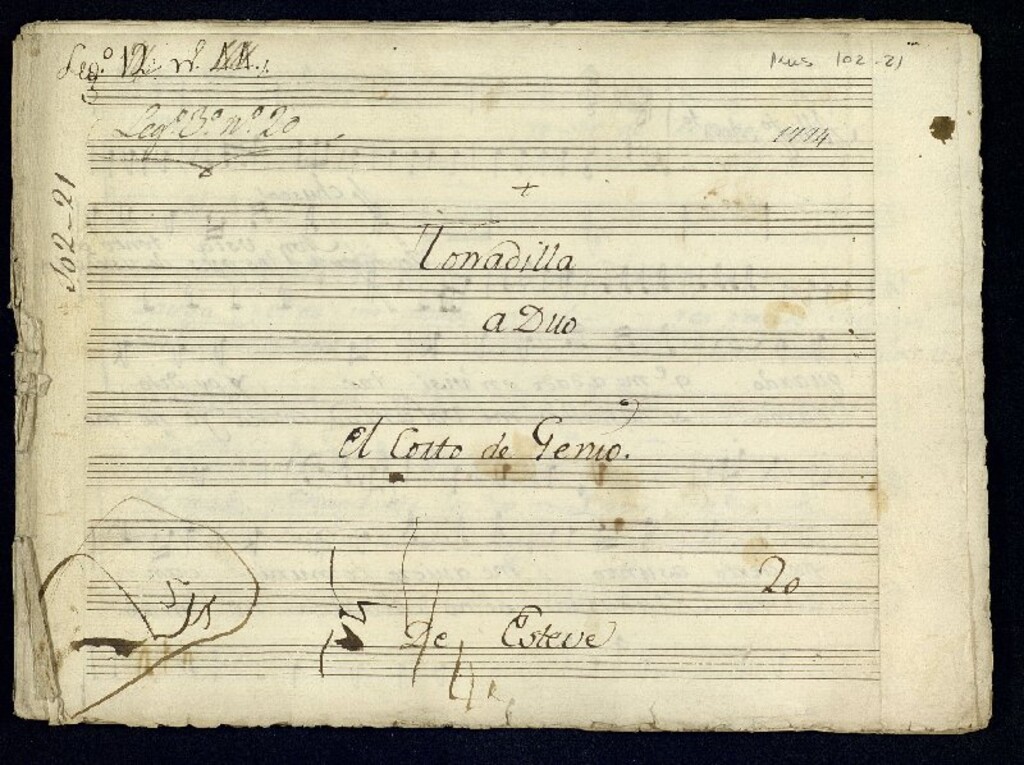 Leg.º 12. nº
Mus 102-21
Leg.º 3.º n.º 20
102-21
+
Tonadilla
a Duo
El Corto de Genio.
20
De Esteve